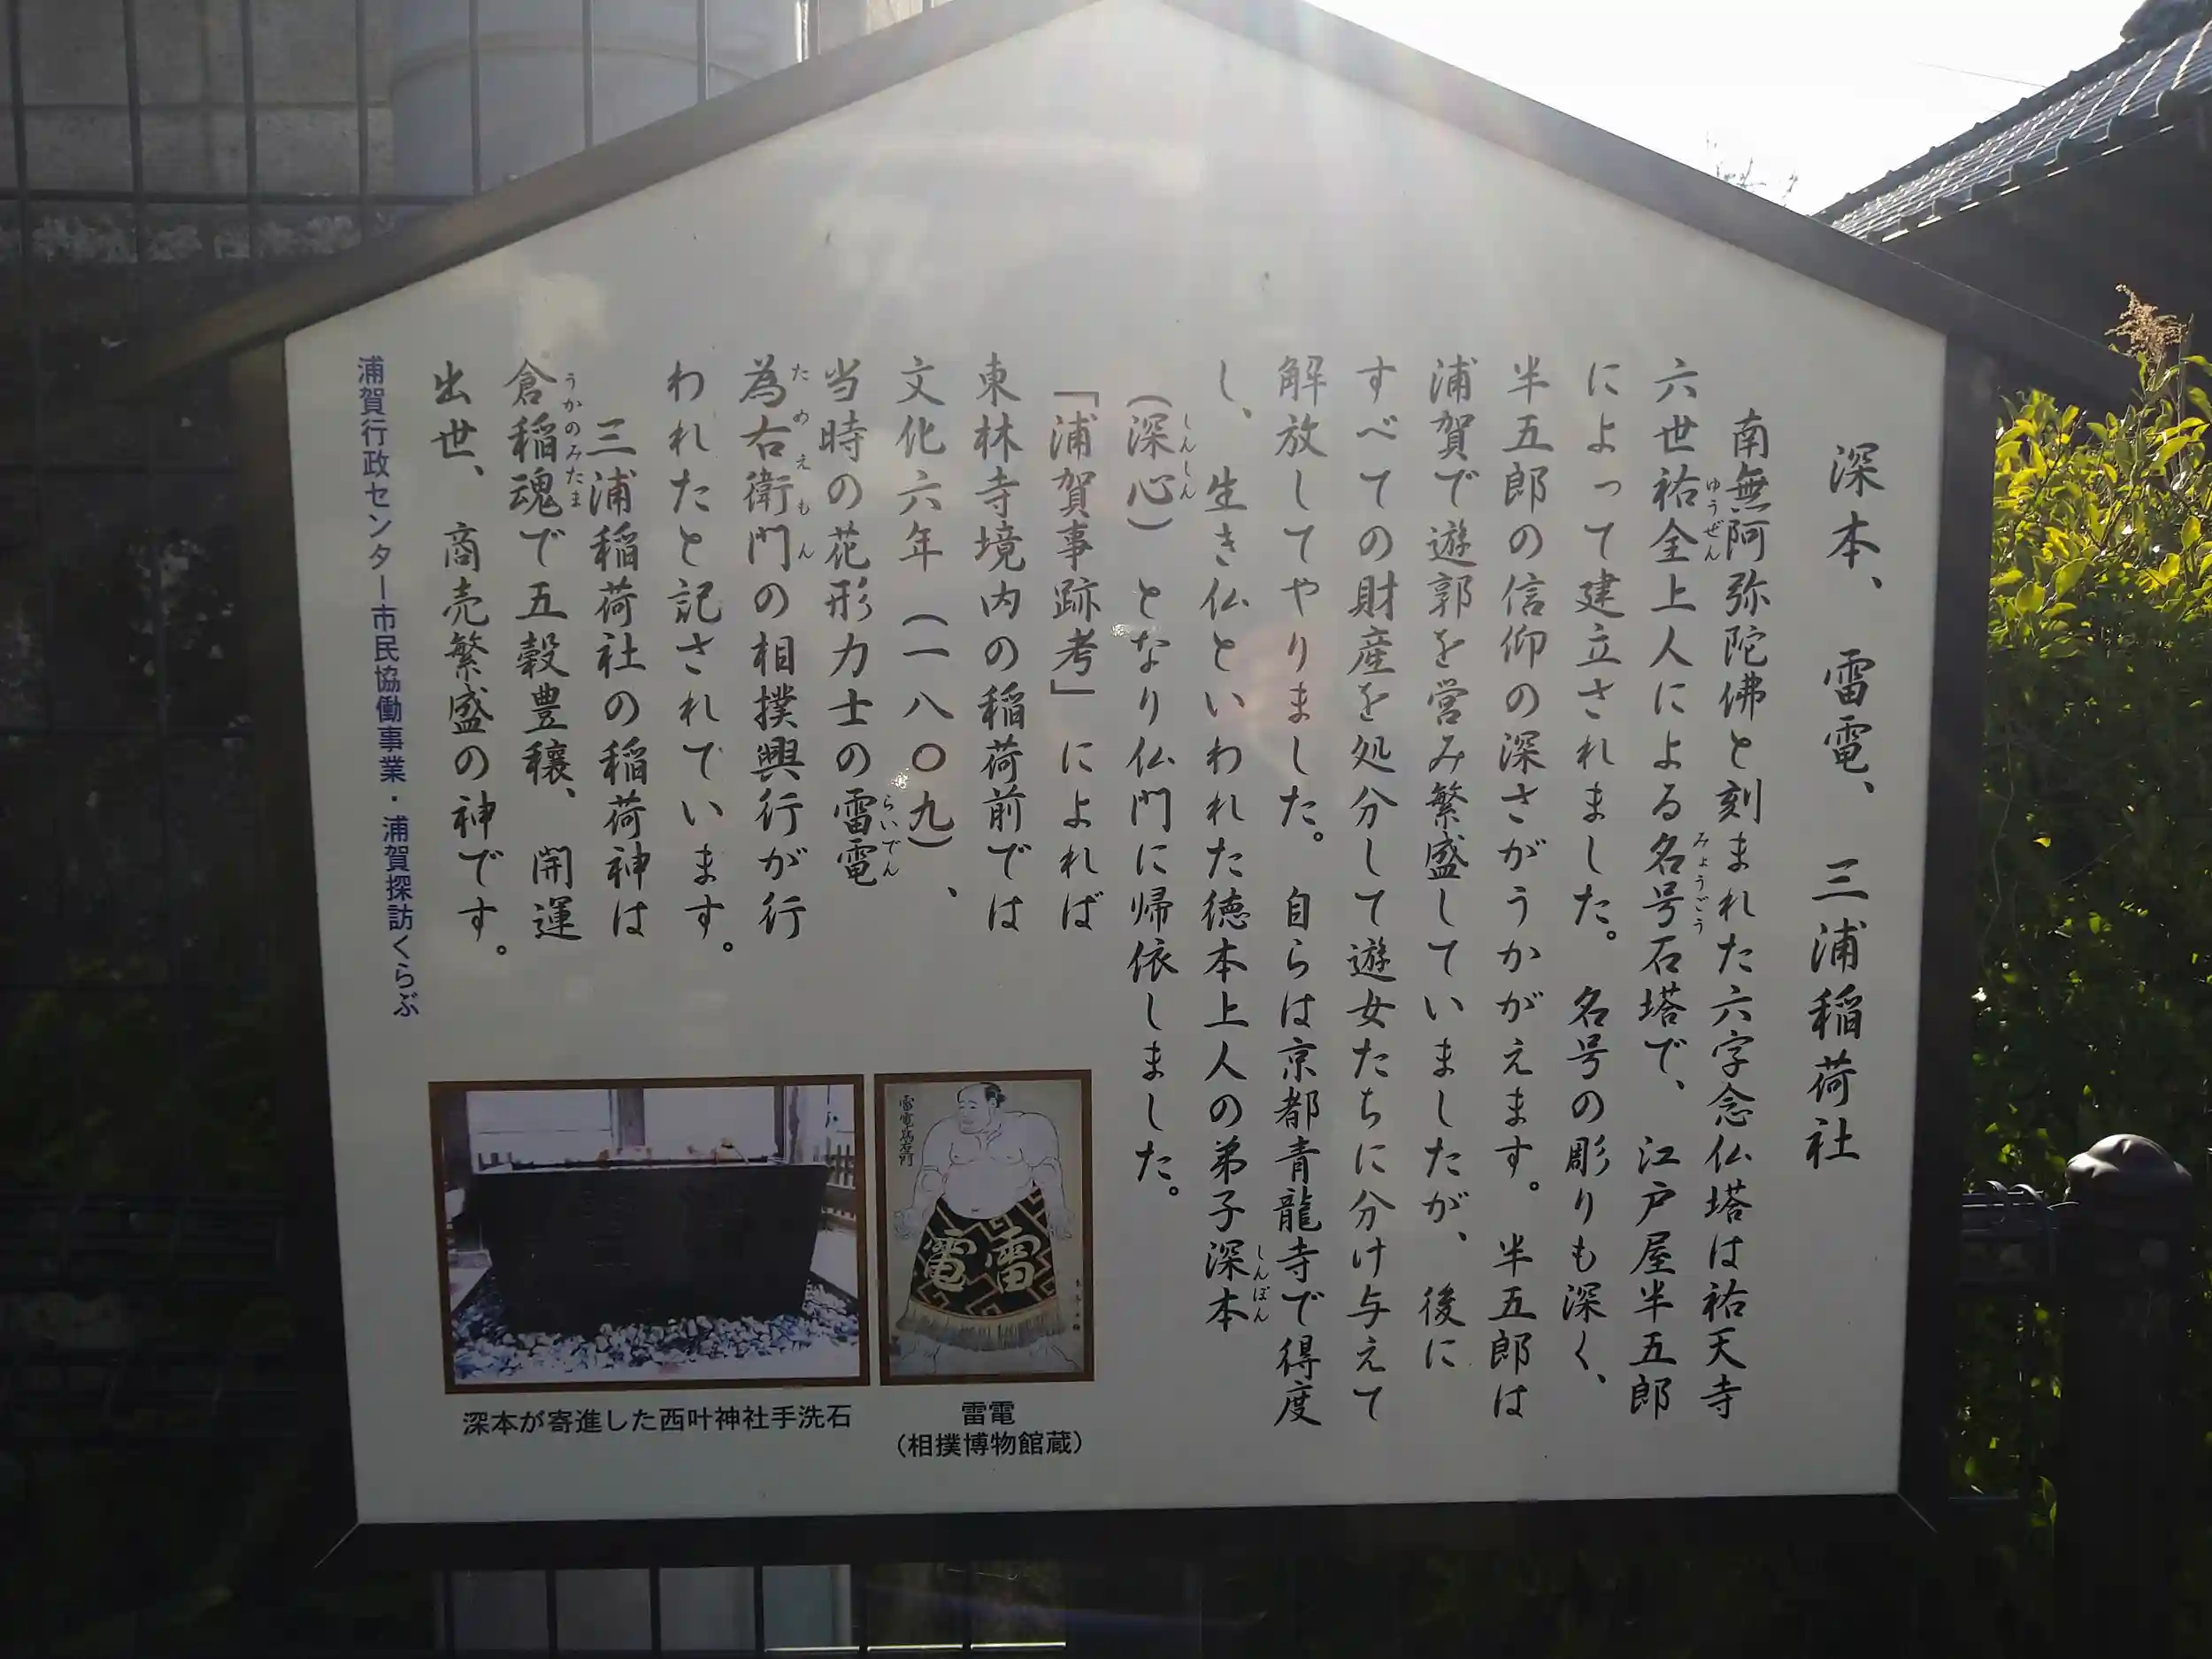 深本、雷電、三浦稲荷社
南無阿弥陀佛と刻まれた六字念仏塔は祐天寺
六世祐全上人による名号石塔で、江戸屋半五郎
ゆうぜん
みょうごう
によって建立されました。名号の彫りも深く、
半五郎の信仰の深さがうかがえます。半五郎は
浦賀で遊郭を営み繁盛していましたが、後に
すべての財産を処分して遊女たちに分け与えて
解放してやりました。自らは京都青龍寺で得度
し、生き仏といわれた徳本上人の弟子深本
しんぽん
(深心)となり仏門に帰依しました。
しんしん
「浦賀事跡考」によれば
東林寺境内の稲荷前では
文化六年(一八〇九)、
当時の花形力士の雷電
らいでん
為右衛門の相撲興行が行
ためえもん
われたと記されています。
三浦稲荷社の稲荷神は
倉稲魂で五穀豊穣、開運
うかのみたま
出世、商売繁盛の神です。
浦賀行政センター市民協働事業・浦賀探訪くらぶ
雷電
雷電
(相撲博物館蔵)
深本が寄進した西叶神社手洗石